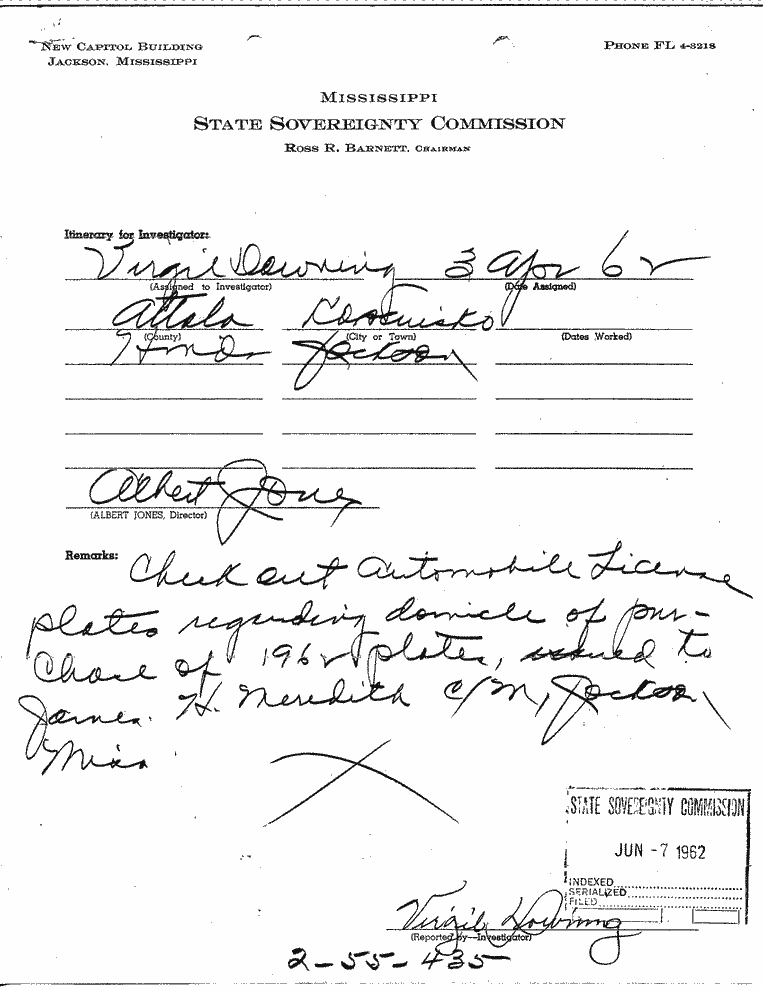 NEW CAPITOL BUILDING PHONE FL 4-3218
JACKSON, MISSISSIPPI
MISSISSIPPI
STATE SOVEREIGNTY COMMISSION
ROSS R. BARNETT, CHAIRMAN
Itinerary for Investigator:
Virgil Downing 3 Apr 62
(Assigned to Investigator) (Date Assigned)
Attala Kosciusko
(County) (City or Town) (Dates Worked)
Hinds Jackson
Albert Jones
(ALBERT JONES, Director)
Remarks: Check out Automobile License
plates regarding domicle of pur-
chase of 1962 plates, issued to
James H. Meredith c/m, Jackson
Miss
STATE SOVEREIGNTY COMMISSION
JUN -7 1962
INDEXED
SERIALIZED
FILED
Virgil Downing
(Reported by—Investigator)
2-55-435